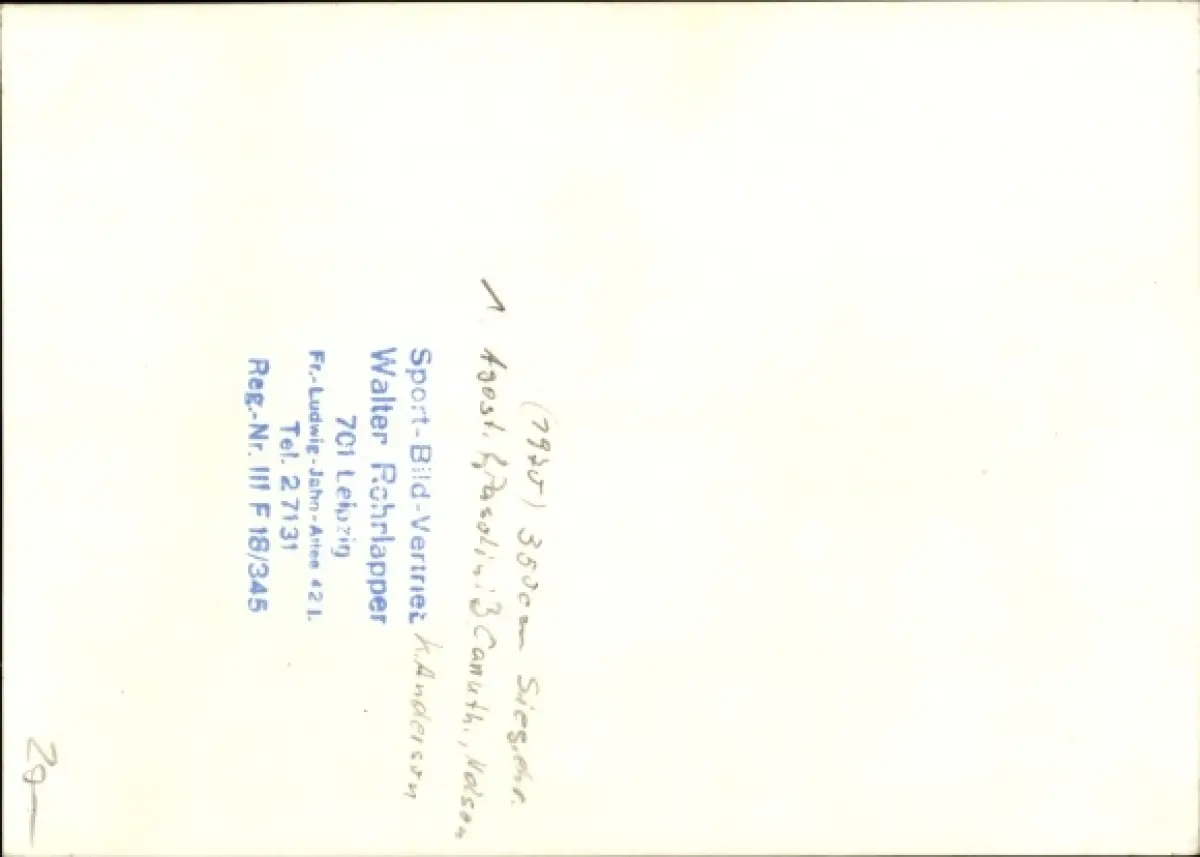 (1970) 350ccm Siegehr.
1. Agost. 2. Pasolini 3 Caruth., Nelson
K. Anderson
Sport-Bild-Vertrieb
Walter Rohrlapper
701 Leipzig
Fr.-Ludwig-Jahn-Allee 42 I.
Tel. 27131
Reg.-Nr. III F 18/345